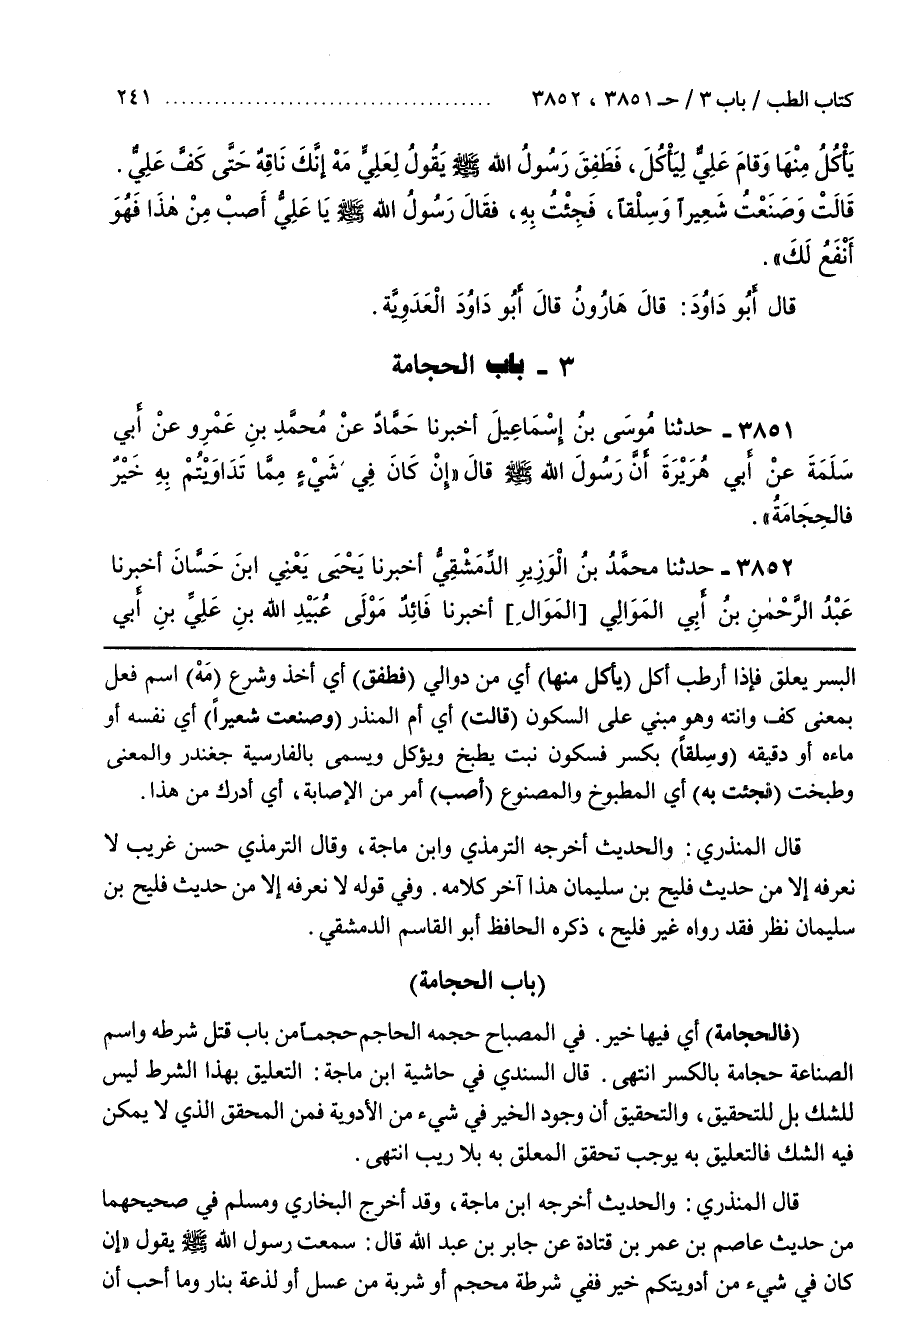 كتاب الطب / باب ٣ / حـ ٣٨٥١ ، ٣٨٥٢ ..................................... ٢٤١
يَأْكُلُ مِنْهَا وَقامَ عَلِيٌّ لِيَأْكُلَ، فَطَفِقَ رَسُولُ الله ﷺ يَقُولُ لِعَلِيٍّ مَهْ إنَّكَ نَاقِهٌ حَتَّى كَفَّ عَلِيٌّ.
قَالَتْ وَصَنَعْتُ شَعِيراً وَسِلْقاً، فَجِئْتُ بِهِ، فقَالَ رَسُولُ الله ﷺ يَا عَلِيُّ أَصِبْ مِنْ هٰذَا فَهُوَ
أَنْفَعُ لَكَ».
قال أَبُو دَاوُدَ: قالَ هَارُونُ قالَ أَبُو دَاوُدَ الْعَدَوِيَّة.
٣ ـ باب الحجامة
٣٨٥١ ـ حدثنا مُوسَى بنُ إسْمَاعِيلَ أخبرنا حَمَّادٌ عنْ مُحمَّدِ بنِ عَمْرِو عنْ أبي
سَلَمَةَ عنْ أبي هُرَيْرَةَ أَنَّ رَسُولَ الله ﷺ قالَ «إنْ كَانَ فِي شَيْءٍ مِمَّا تَدَاوَيْتُمْ بِهِ خَيْرٌ
فالحِجَامَةُ».
٣٨٥٢ ـ حدثنا محمَّدُ بنُ الْوَزِيرِ الدِّمَشْقِيُّ أخبرنا يَحْيَى يَعْنِي ابنَ حَسَّانَ أخبرنا
عَبْدُ الرَّحْمٰنِ بنُ أَبِي المَوَالِي [المَوَالِ] أخبرنا فَائِدٌ مَوْلَى عُبَيْدِ الله بنِ عَلِيِّ بنِ أَبي
البسر يعلق فإذا أرطب أكل (يأكل منها) أي من دوالي (فطفق) أي أخذ وشرع (مَهْ) اسم فعل
بمعنى كف وانته وهو مبني على السكون (قالت) أي أم المنذر (وصنعت شعيراً) أي نفسه أو
ماءه أو دقيقه (وسِلقاً) بكسر فسكون نبت يطبخ ويؤكل ويسمى بالفارسية جغندر والمعنى
وطبخت (فجئت به) أي المطبوخ والمصنوع (أصب) أمر من الإصابة، أي أدرك من هذا.
قال المنذري: والحديث أخرجه الترمذي وابن ماجة، وقال الترمذي حسن غريب لا
نعرفه إلا من حديث فليح بن سليمان هذا آخر كلامه. وفي قوله لا نعرفه إلا من حديث فليح بن
سليمان نظر فقد رواه غير فليح، ذكره الحافظ أبو القاسم الدمشقي.
(باب الحجامة)
(فالحجامة) أي فيها خير. في المصباح حجمه الحاجم حجماً من باب قتل شرطه واسم
الصناعة حجامة بالكسر انتهى. قال السندي في حاشية ابن ماجة: التعليق بهذا الشرط ليس
للشك بل للتحقيق، والتحقيق أن وجود الخير في شيء من الأدوية فمن المحقق الذي لا يمكن
فيه الشك فالتعليق به يوجب تحقق المعلق به بلا ريب انتهى.
قال المنذري: والحديث أخرجه ابن ماجة، وقد أخرج البخاري ومسلم في صحيحهما
من حديث عاصم بن عمر بن قتادة عن جابر بن عبد الله قال: سمعت رسول الله ﷺ يقول «إن
كان في شيء من أدويتكم خير ففي شرطة محجم أو شربة من عسل أو لذعة بنار وما أحب أن